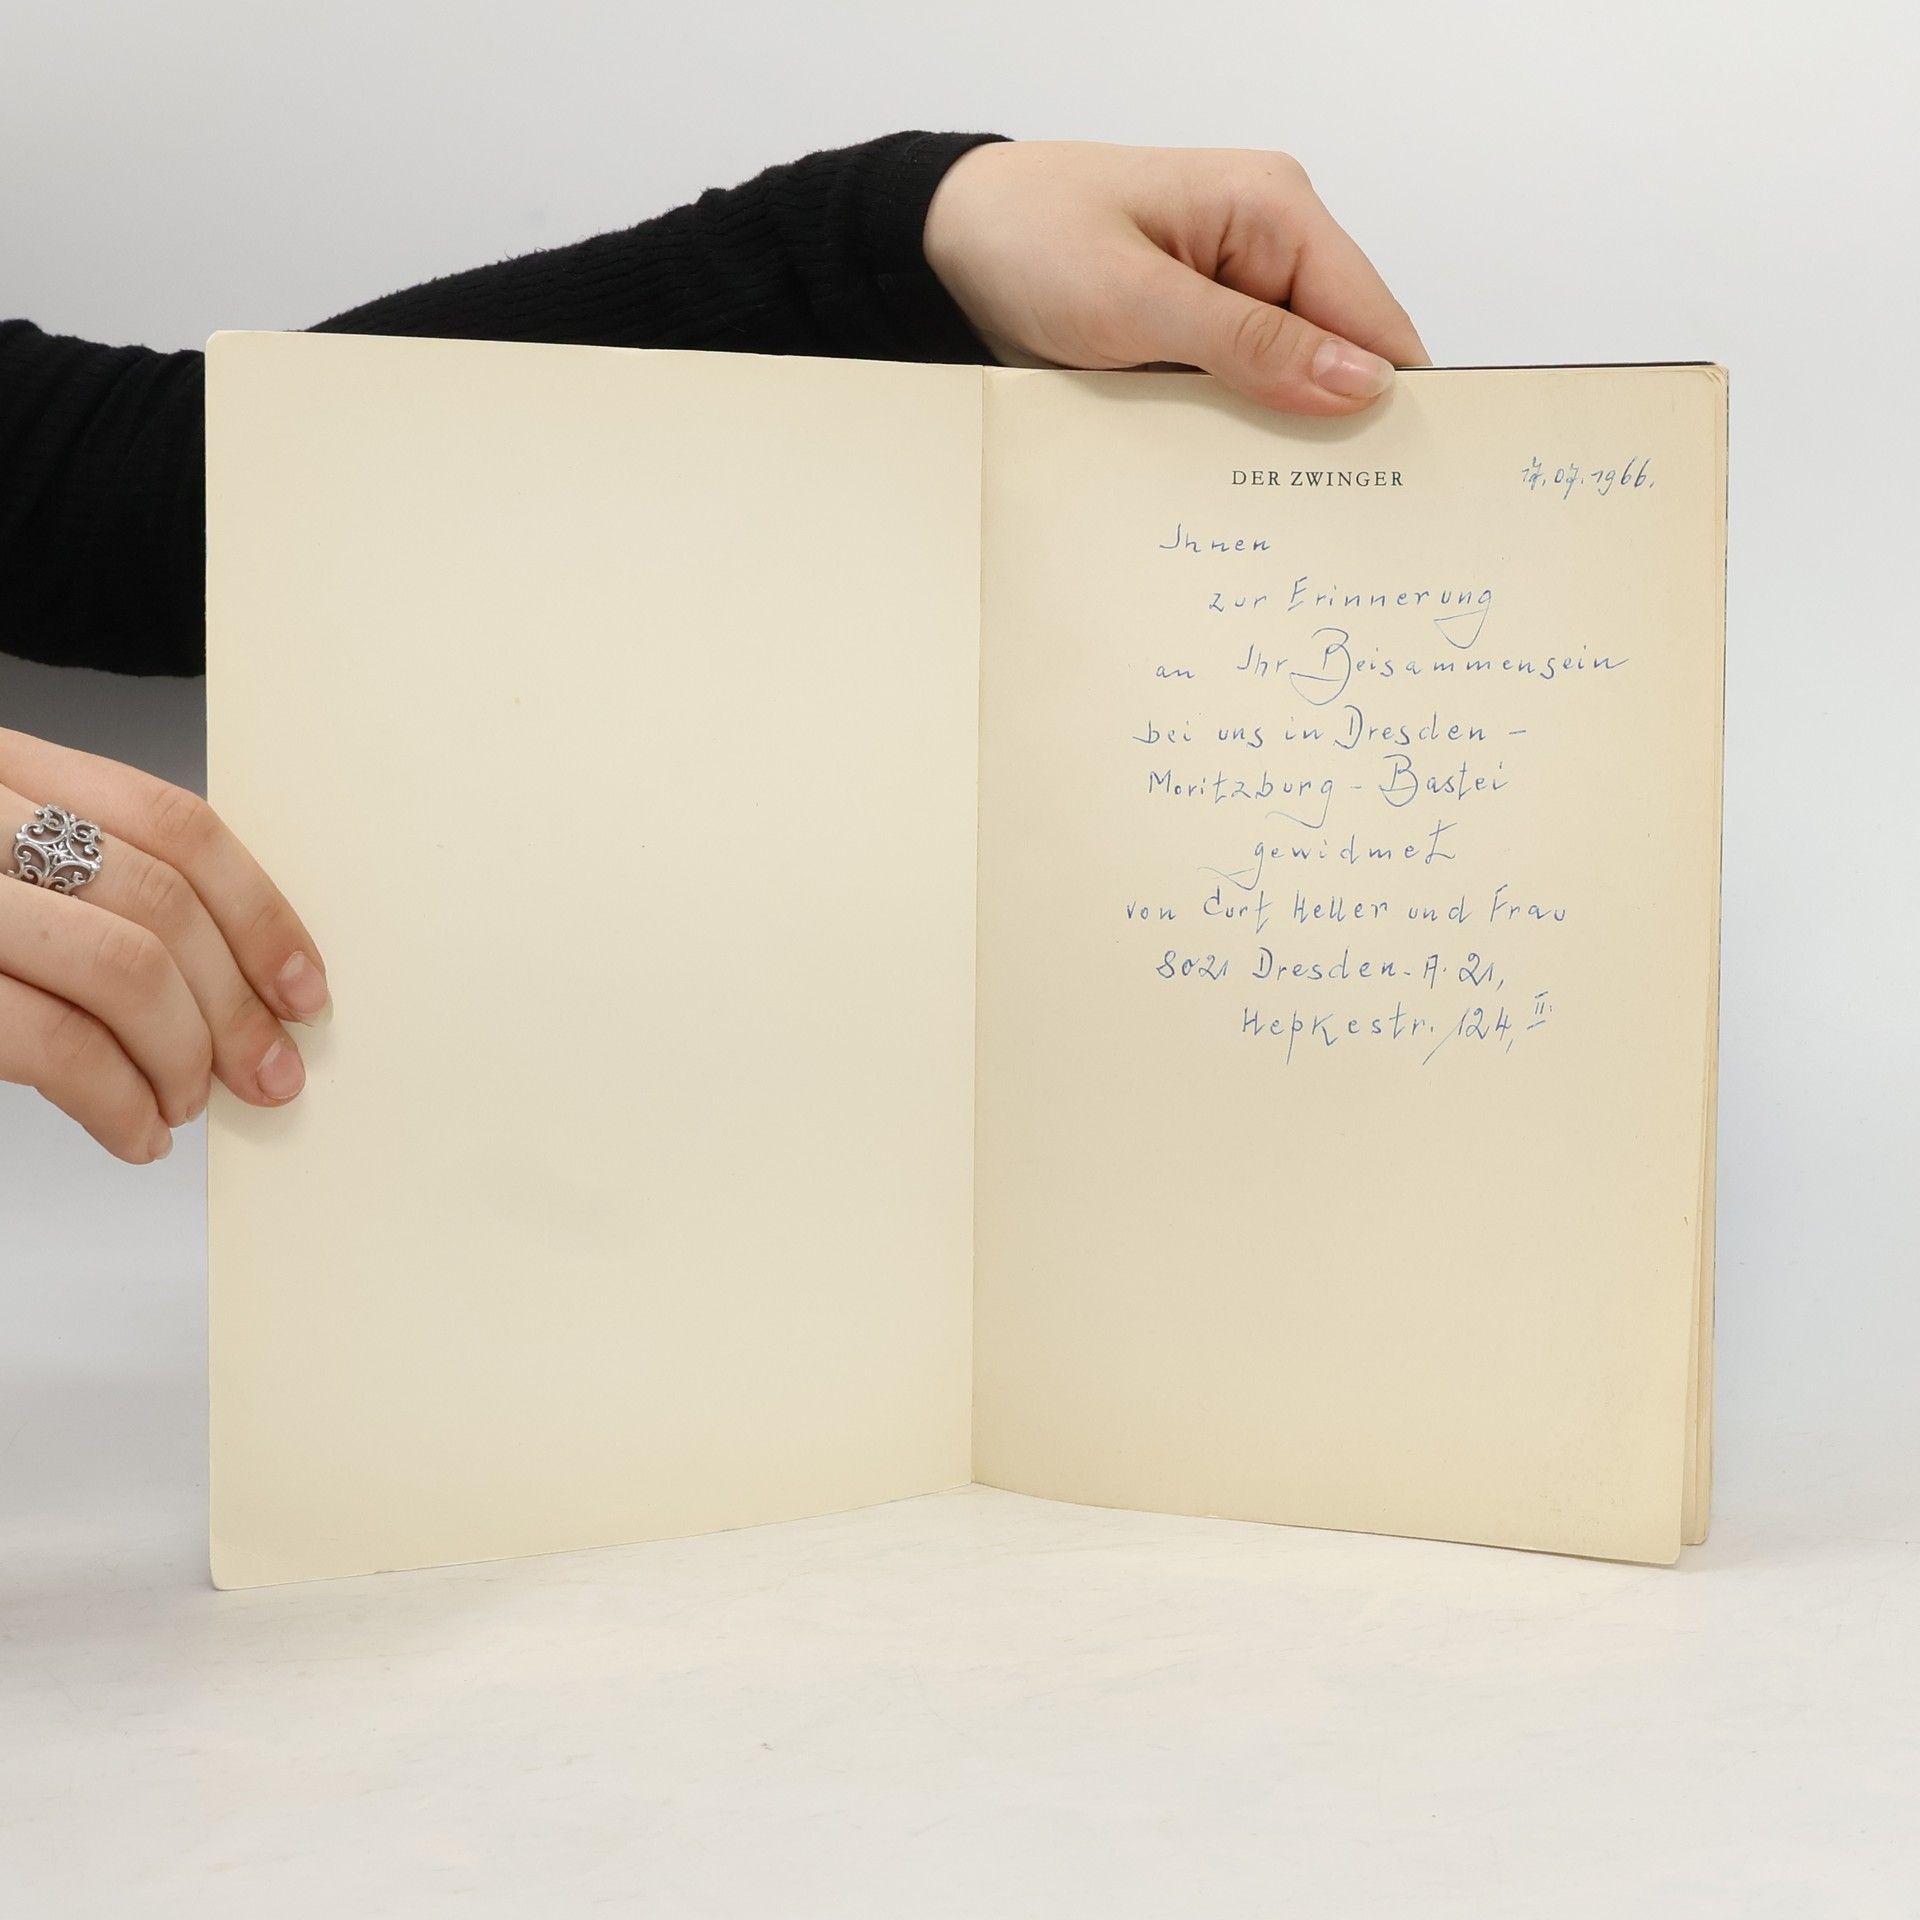 DER ZWINGER 17.07.1966.
Ihnen
zur Erinnerung
an Ihr Beisammensein
bei uns in Dresden –
Moritzburg – Bastei
gewidmet
von Curt Heller und Frau
8021 Dresden. A. 21,
Hepkestr. 124, II.